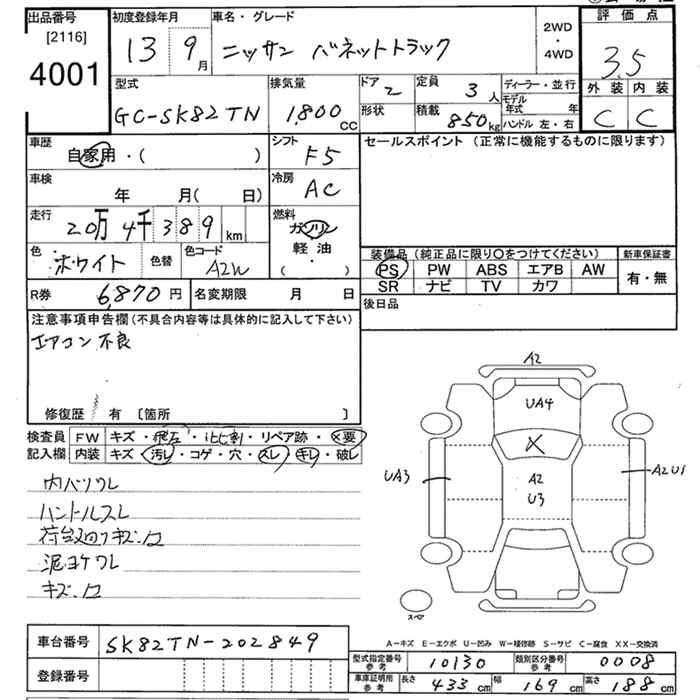 出品番号
[2116]
4001
初度登録年月
13 9月
車名・グレード
ニッサン バネットトラック
2WD
・
4WD
評価点
3.5
外装 内装
C C
型式
GC-SK82TN
排気量
1,800cc
ドア 2
形状
定員 3人
積載 850kg
ディーラー・並行
モデル年式 年
ハンドル 左・右
車歴
自家用・( )
シフト
F5
車検
年 月( 日)
冷房
AC
走行
20万4千389km
燃料
ガソリン
・
軽油
・
( )
色
ホワイト
色替
色コード
A2W
R券 6,870円
名変期限 月 日
セールスポイント(正常に機能するものに限ります)
装備品(純正品に限り〇をつけてください)
PS PW ABS エアB AW
SR ナビ TV カワ
新車保証書
有・無
後日品
注意事項申告欄(不具合内容等は具体的に記入して下さい)
エアコン不良
修復歴 有 [箇所 ]
検査員
記入欄
FW キズ・飛石・ヒビ割・リペア跡・X要
内装 キズ・汚レ・コゲ・穴・スレ・キレ・破レ
ハンドルスレ
キズ・凹
A2
UA4
X
A2
U3
UA3
A2U1
スペア
A-キズ E-エクボ U-凹み W-補修跡 S-サビ C-腐食 XX-交換済
車台番号 SK82TN-202849
登録番号
型式指定番号
参考
10130
類別区分番号
参考
0008
車庫証明用
参考
長さ 433cm 幅 169cm 高さ 188cm